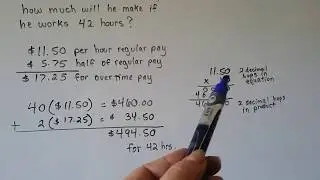 how much will he make if
he works 42 hours?
$11.50 per hour regular pay
$ 5.75 half of regular pay
$17.25 for overtime pay
40($11.50) = $460.00
+ 2($17.25) = $ 34.50
$494.50
for 42 hrs.
11.50
x
2 decimal
hops in
equation
2 decimal hops
in product